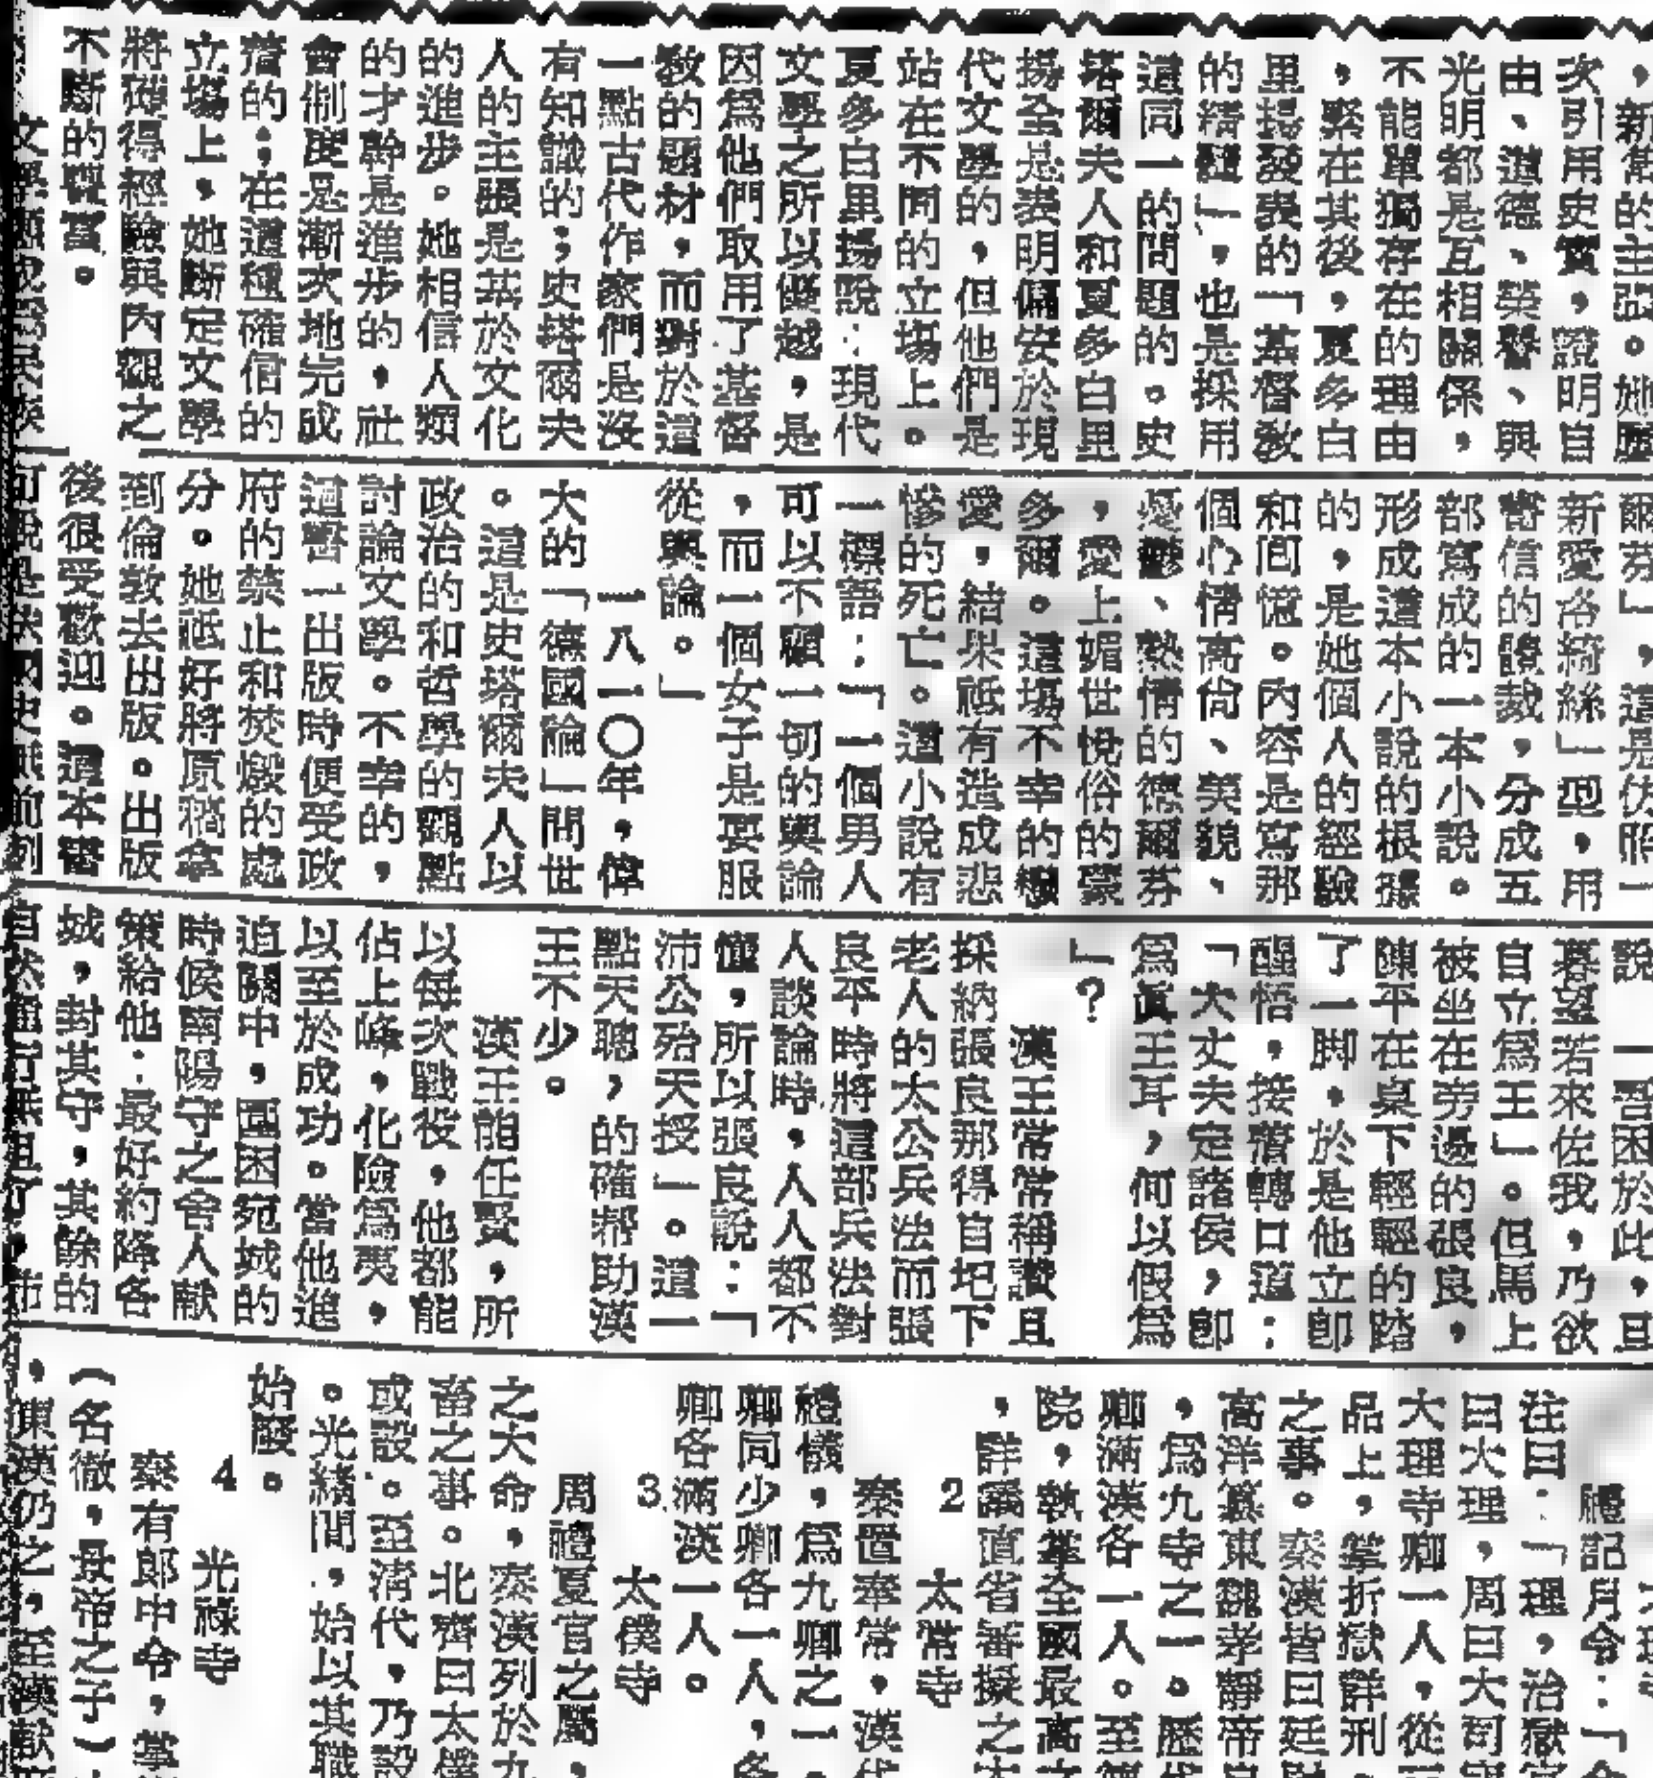 ，新常的主張。她歷
次引用史實，證明自
由、道德、榮譽、與
光明都是互相關係，
不能單獨存在的理由
，緊在其後，夏多白
里揚發表的「基督教
的精髓」，也是採用
這同一的問題的。史
塔爾夫人和夏多白里
揚全是表明偏安於現
代文學的，但他們是
站在不同的立場上。
夏多白里揚說：現代
文學之所以優越，是
因爲他們取用了基督
教的題材，而對於這
一點古代作家們是沒
有知識的；史塔爾夫
人的主張是基於文化
的進步。她相信人類
的才幹是進步的，社
會制度是漸次地完成
着的；在這種確信的
立場上，她斷定文學
將獲得經驗與內觀之
不斷的豐富。
爾芬」，這是仿照一
新愛洛綺絲」型，用
書信的體裁，分成五
部寫成的一本小說。
形成這本小說的根據
的，是她個人的經驗
和回憶。內容是寫那
個心情高尙、美貌、
憂鬱、熱情的德爾芬
，愛上媚世悅俗的蒙
多爾。這場不幸的戀
愛，結果祇有造成悲
慘的死亡。這小說有
一標語：「一個男人
可以不顧一切的輿論
，而一個女子是要服
從輿論。」
一八一〇年，偉
大的「德國論」問世
。這是史塔爾夫人以
政治的和哲學的觀點
討論文學。不幸的，
這書一出版時便受政
府的禁止和焚燬的處
分。她祇好將原稿拿
到倫敦去出版。出版
後很受歡迎。這本書
說　一吾困於此，且
暮望若來佐我，乃欲
自立爲王」。但馬上
被坐在旁邊的張良，
陳平在桌下輕輕的踏
了一脚，於是他立卽
醒悟，接着轉口道：
「大丈夫定諸侯，卽
爲眞王耳，何以假爲
」？
漢王常常稱讚且
採納張良那得自圯下
老人的太公兵法而張
良平時將這部兵法對
人談論時，人人都不
懂，所以張良說：「
沛公殆天授」。這一
點天聰，的確帮助漢
王不少。
漢王能任賢，所
以每次戰役，他都能
佔上峰，化險爲夷，
以至於成功。當他進
迫關中，圍困宛城的
時候南陽守之舍人献
策給他：最好約降各
城，對其守，其餘的
禮記月令：「
注曰：「理，治獄
曰大理，周曰大司
大理寺卿一人，從
品上，掌折獄詳刑
之事。秦漢皆曰廷
高洋篡東魏孝靜帝
，爲九寺之一。歷
卿滿漢各一人。至
院，執掌全國最高
，詳議直省審擬之
2　太常寺
秦置奉常，漢
禮儀，爲九卿之一，
卿同少卿各一人，
卿各滿漢一人。
3　太僕寺
周禮夏官之屬，
之大命，秦漢列於九
畜之事。北齊曰太僕
或設。至淸代，乃設
。光緒間，始以其職
始廢。
4　光祿寺
秦有郎中令，掌
（名徹，景帝之子）
，東漢仍之，至漢獻